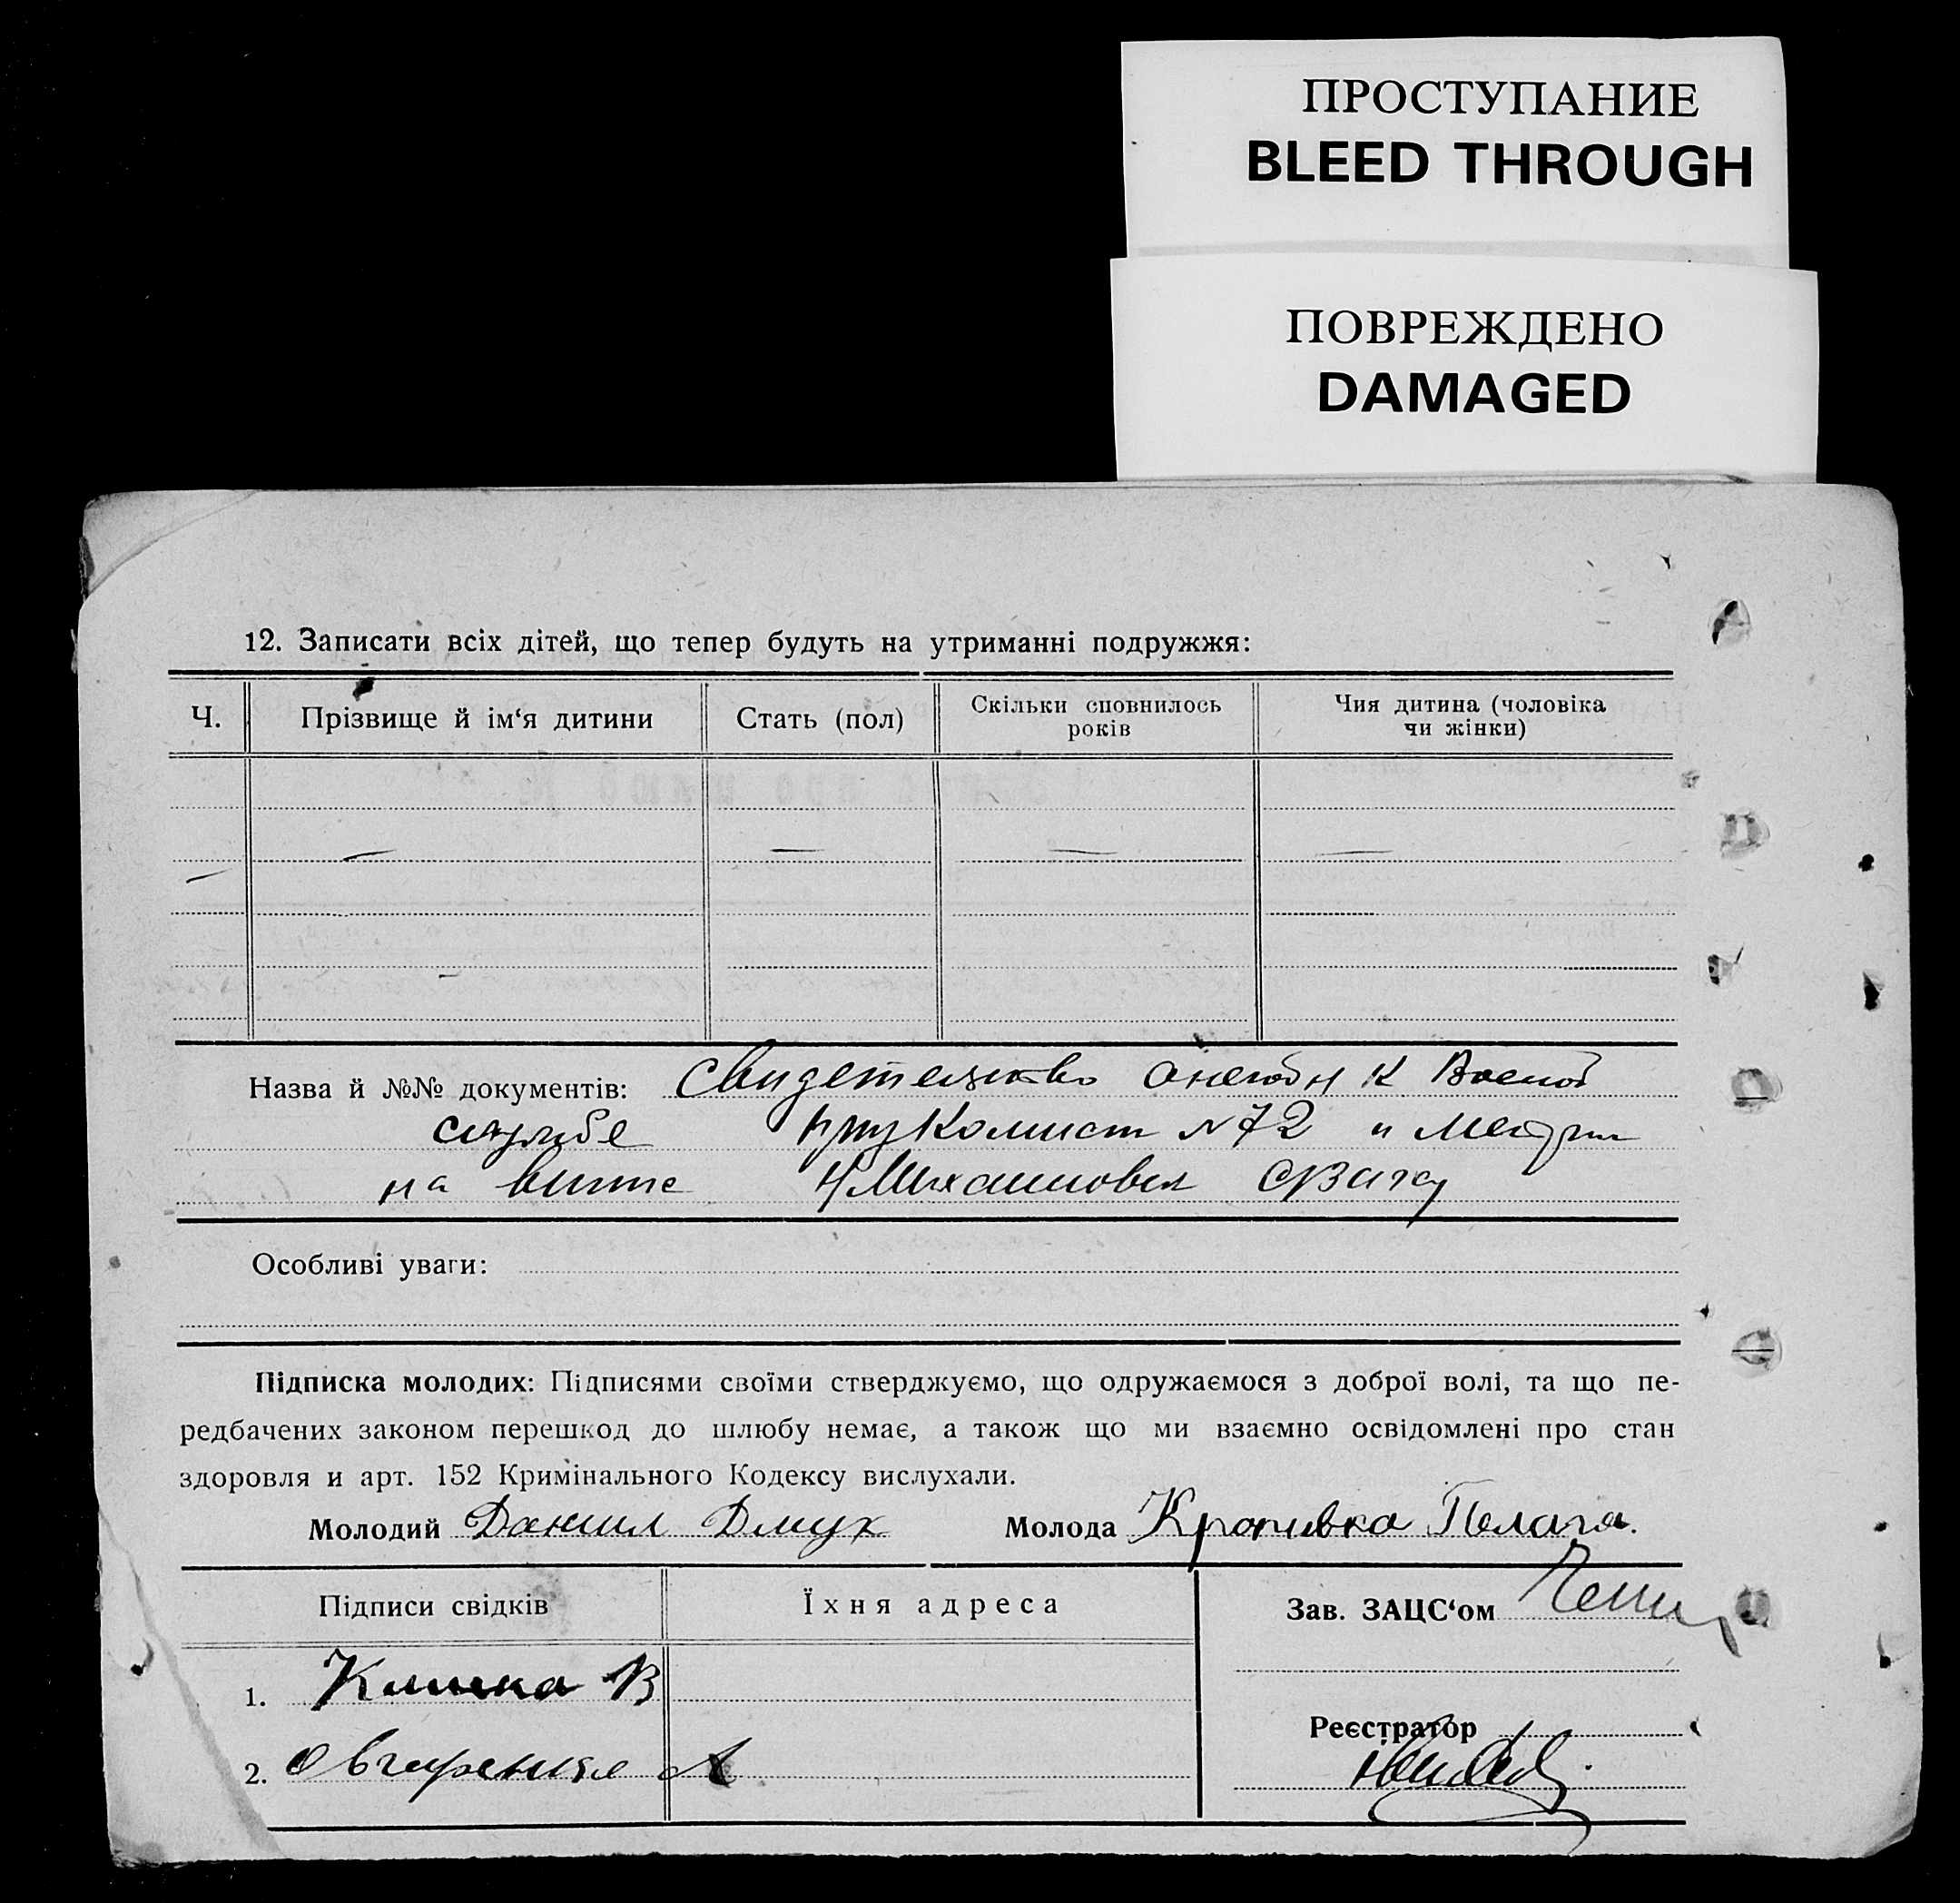 ПРОСТУПАНИЕ
BLEED THROUGH
ПОВРЕЖДЕНО
DAMAGED
12. Записати всіх дітей, що тепер будуть на утриманні подружжя:
Ч.
Прізвище й ім‘я дитини
Стать (пол)
Скільки сповнилось
років
Чия дитина (чоловіка
чи жінки)
Назва й №№ документів: Свидетельство о к Воєной
службе №72 и
на
Особливі уваги:
Підписка молодих: Підписями своїми стверджуємо, що одружаємося з доброї волі, та що пе-
редбачених законом перешкод до шлюбу немає, а також що ми взаємно освідомлені про стан
здоровля и арт. 152 Кримінального Кодексу вислухали.
Молодий Данил Дмух Молода Кропивка
Підписи свідків
Їхня адреса
Зав. ЗАЦС‘ом
1. В
2.
Реєстратор